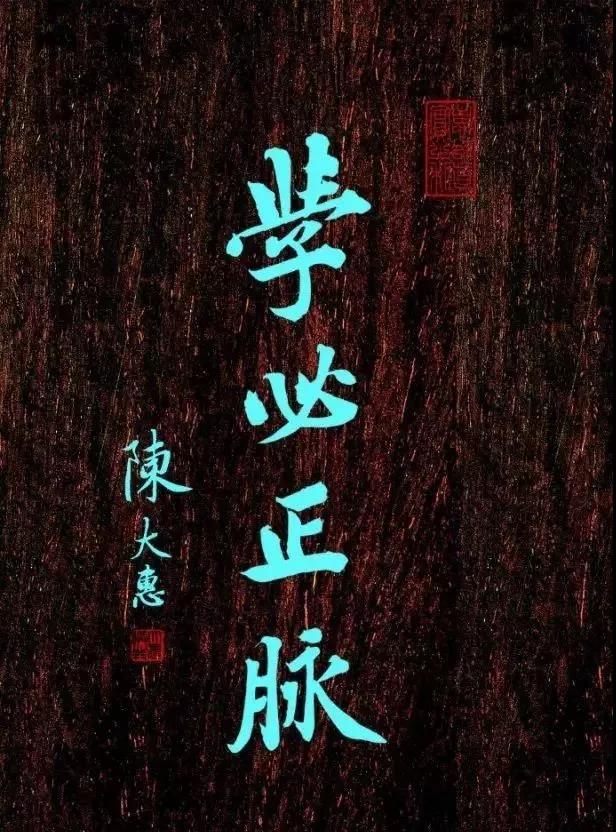 學必正脉
陳大惠